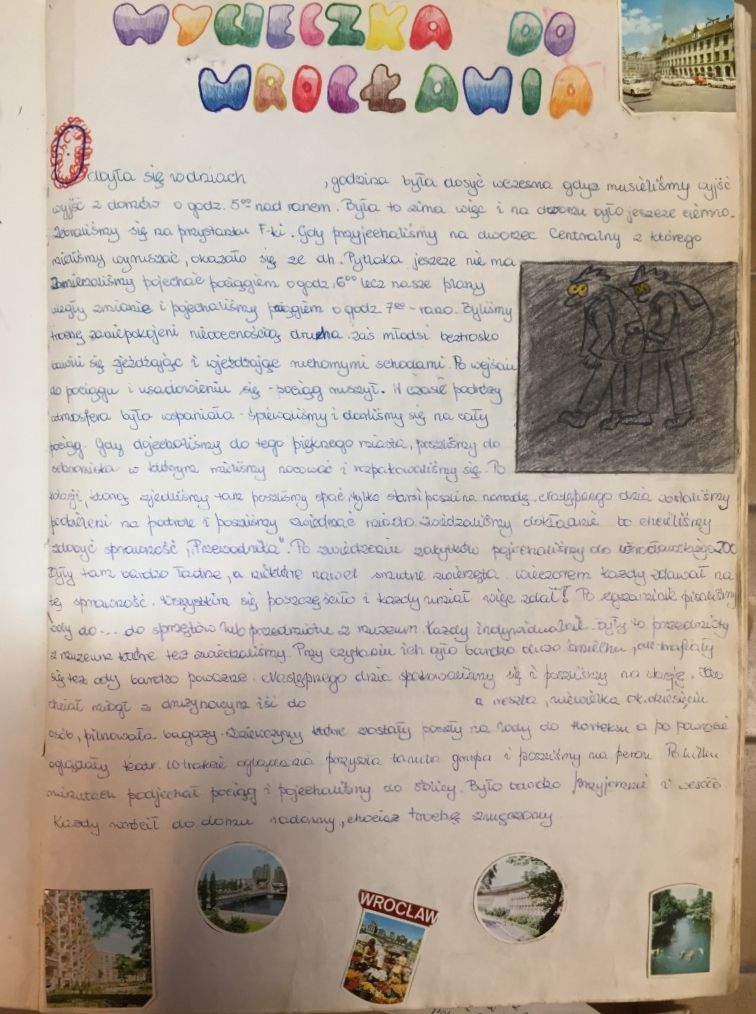 WYCIECZKA DO
WROCŁAWIA
Odbyła się w dniach , godzina była dosyć wczesna gdyż musieliśmy wyjść
wyjść z domów o godz. 5⁰⁰ nad ranem. Była to zima więc i na dworzu było jeszcze ciemno.
Zebraliśmy się na przystanku F-ki. Gdy przyjechaliśmy na dworzec Centralny z którego
mieliśmy wyruszać, okazało się że dh. Pytlaka jeszcze nie ma
Zamierzaliśmy pojechać pociągiem o godz. 6⁰⁰ lecz nasze plany
uległy zmianie i pojechaliśmy pociągiem o godz 7⁰⁰ - rano. Byliśmy
trochę zaniepokojeni nieobecnością druha. zaś młodsi beztrosko
bawili się zjeżdżając i wjeżdżając ruchomymi schodami. Po wejściu
do pociągu i usadowieniu się - pociąg ruszył. W czasie podróży
atmosfera była wspaniała - śpiewaliśmy i darliśmy się na cały
pociąg. Gdy dojechaliśmy do tego pięknego miasta, poszliśmy do
schroniska w którym mieliśmy nocować i rozpakowaliśmy się. Po
kolacji, którą zjedliśmy tam poszliśmy spać, tylko starsi poszli na naradę. Następnego dnia zostaliśmy
podzieleni na patrole i poszliśmy zwiedzać miasto. Zwiedzaliśmy dokładnie bo chcieliśmy
zdobyć sprawność "Przewodnika". Po zwiedzeniu zabytków pojechaliśmy do wrocławskiego ZOO
Były tam bardzo ładne, a niektóre nawet smutne zwierzęta. Wieczorem każdy zdawał na
tę sprawność. Wszystkim się poszczęściło i każdy umiał więc zdał! Po egzaminie pisaliśmy
ody do.... do sprzętów lub przedmiotów z muzeum. Każdy indywidualnie. Były to przedmioty
z muzeum które też zwiedzaliśmy. Przy czytaniu ich było bardzo dużo śmiechu, ale trafiały
się też ody bardzo poważne. Następnego dnia spakowaliśmy się i poszliśmy na stację. Kto
chciał mógł z drużynowym iść do a reszta, niewielka ok. dziesięciu
osób, pilnowała bagaży. Dziewczyny które zostały poszły na lody do Horteksu a po powrocie
oglądały teatr. W trakcie oglądania przyszła tamta grupa i poszliśmy na peron. Po kilku
minutach podjechał pociąg i pojechaliśmy do stolicy. Było bardzo przyjemnie i wesoło.
Każdy wrócił do domu radosny, chociaż trochę zmęczony
WROCŁAW